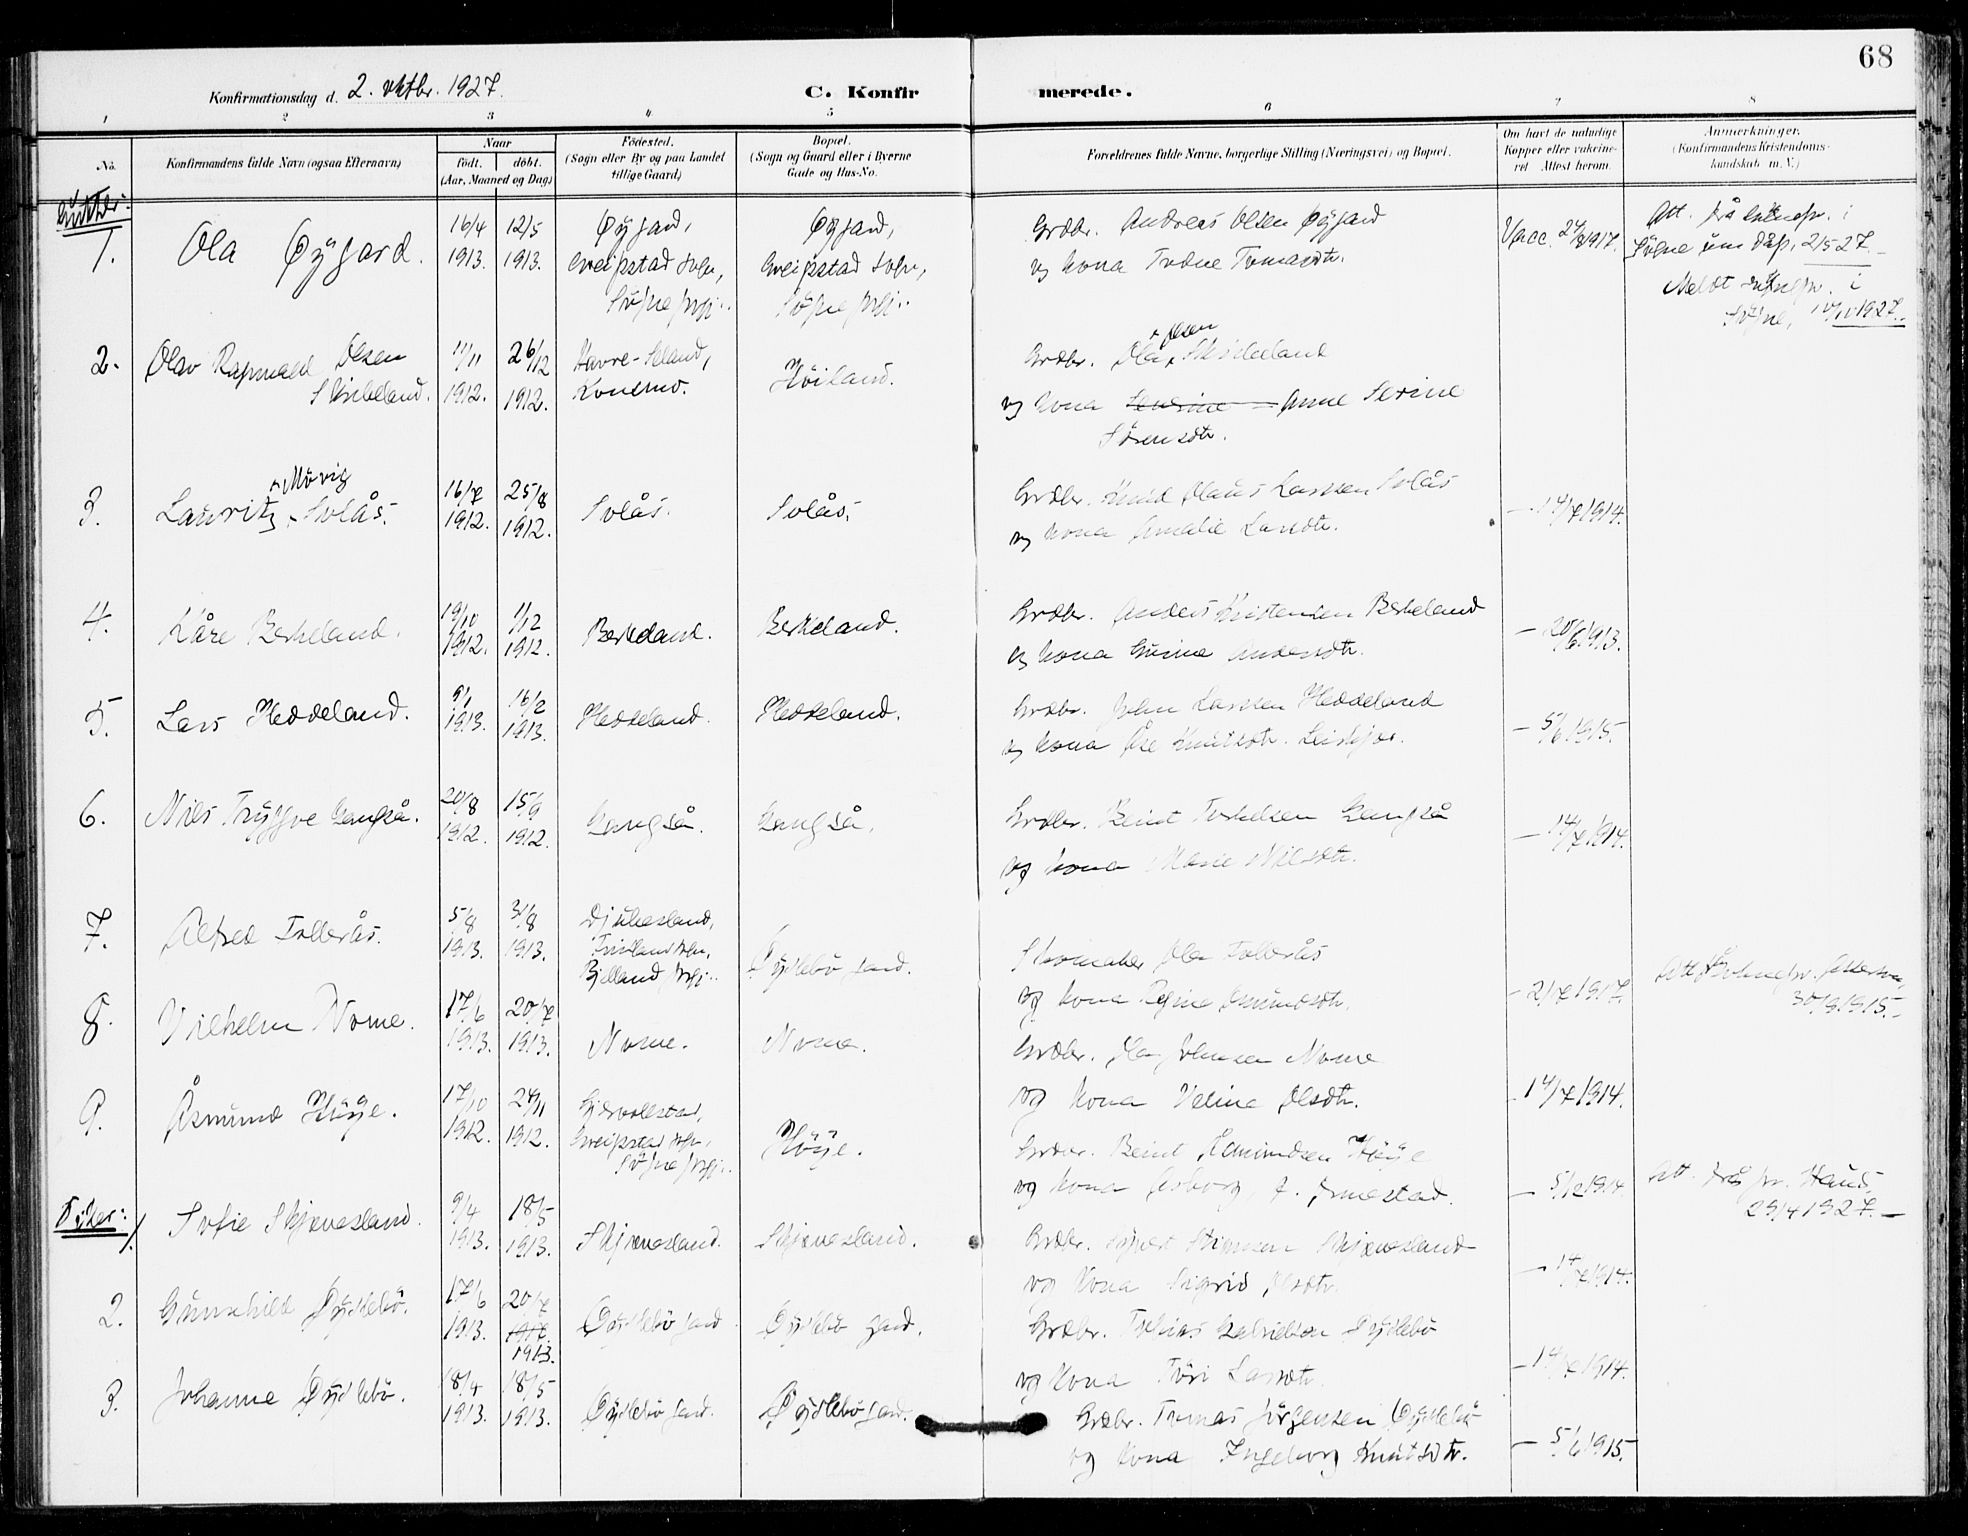 68
Konfirmationsdag d. 2. oktbr. 1927.
C. Konfirmerede.
1 2 3 4 5 6 7 8
No.
Konfirmandens fulde Navn (ogsaa Efternavn)
Naar
födt.
döbt.
(Aar, Maaned og Dag)
Födested.
(Sogn eller By og paa Landet
tillige Gaard)
Bopæl.
(Sogn og Gaard eller i Byerne
Gade og Hus-No.
Forældrenes fulde Navne, borgerlige Stilling (Næringsvei) og Bopæl.
Om havt de naturlige
Kopper eller vakcine-
ret Attest herom.
Anmerkninger.
(Konfirmandens Kristendoms-
kundskab m. V.)
Gutter:
1. Ola Øygard.
16/4 1913.
12/5 1913.
Øygard,
Greipstad sogn,
Søgne prgj..
Øygard,
Greipstad sogn,
Søgne prgj..
Grdbr. Andreas Olsen Øygard
og kona Trdne Tomasdtr.
Vacc. 1917.
Att. frå i
Søgne um dåp, 2/5 27.
Meldt i
Søgne, 1927.
2. Olav Ragnvald Olsen
Skibeland.
11/11 1912.
26/12 1912.
Høiland.
Grdbr. Ola Olsen Skibeland
og kona Anne Serine
Sörensdtr.
3. Lauritz Mövig Solås.
16/7 1912.
25/8 1912.
Solås.
Solås.
Grdbr. Knud Olaus Larssen Solås
og kona Amalie Larsdtr.
— 14/7 1914.
4. Kåre Berkeland.
19/10 1912.
1/12 1912.
Berkeland.
Berkeland.
Grdbr. Anders Kristensen Berkeland
og kona Gurine Andersdtr.
— 20/6 1913.
5. Lars Heddeland.
9/1 1913.
16/2 1913.
Heddeland.
Heddeland.
Grdbr. John Larssen Heddeland
og kona Åse Knutsdtr.
— 5/6 1915.
6. Nils Tryggve Langså.
20/8 1912.
15/9 1912.
Langså.
Langså.
Grdbr. Beint Torkelsen Langså
og kona Marie Nilsdtr.
— 14/7 1914.
7. Alfred Follerås.
5/8 1913.
31/8 1913.
Djukesland,
Finsland sogn,
Bjelland prgj..
Øyslebö gard.
Skomaker Ola Follerås
og kona Regine Åsmundsdtr.
— 2/7 1917.
30/9 1915.
8. Vilhelm Nome.
17/6 1913.
20/7 1913.
Nome.
Nome.
Grdbr. Ola Johnsen Nome
og kona Veline Olsdtr.
14/7 1914.
9. Åsmund Höye.
17/10 1912.
24/11 1912.
Greipstad sogn,
Søgne prgj..
Höye.
Grdbr. Beint Åsmundsen Höye
og kona Åsborg
— 5/12 1914.
Att. frå pr. Haus,
29/4 1927. —
Gjenter:
1. Sofie Skjævesland.
9/4 1913.
18/5 1913.
Skjævesland.
Skjævesland.
Grdbr. Skjævesland
og kona Sigrid Olsdtr.
— 14/7 1914.
2. Gunnhild Øyslebö.
17/6 1913.
20/7 1917. 1913.
Øyslebö gard
Øyslebö gard.
Grdbr. Tobias Gabrielsen Øyslebö
og kona Töri Larsdtr.
— 14/7 1914.
3. Johanne Øyslebö.
18/4 1913.
18/5 1913.
Øyslebö gard.
Øyslebö gard.
Grdbr. Tomas Jörgensen Øyslebö
og kona Ingeborg Knutsdtr.
— 5/6 1915.